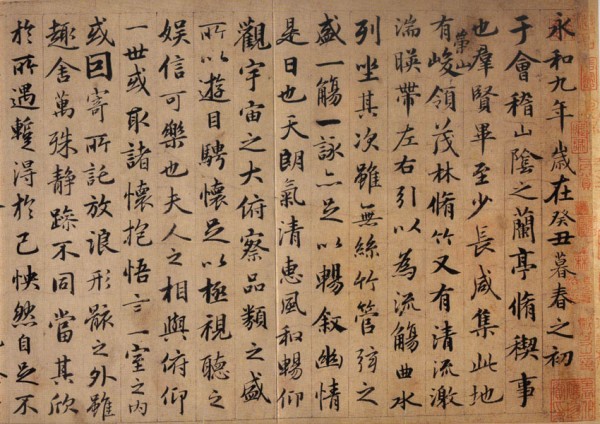 永和九年歲在癸丑暮春之初
于會稽山陰之蘭亭脩禊事
也羣賢畢至少長咸集此地
有崇山峻領茂林脩竹又有清流激
湍暎帶左右引以為流觴曲水
列坐其次雖無絲竹管弦之
盛一觴一詠亦足以暢敘幽情
是日也天朗氣清惠風和暢仰
觀宇宙之大俯察品類之盛
所以遊目騁懷足以極視聽之
娛信可樂也夫人之相與俯仰
一世或取諸懷抱悟言一室之內
或因寄所託放浪形骸之外雖
趣舍萬殊靜躁不同當其欣
於所遇蹔得於己怏然自足不